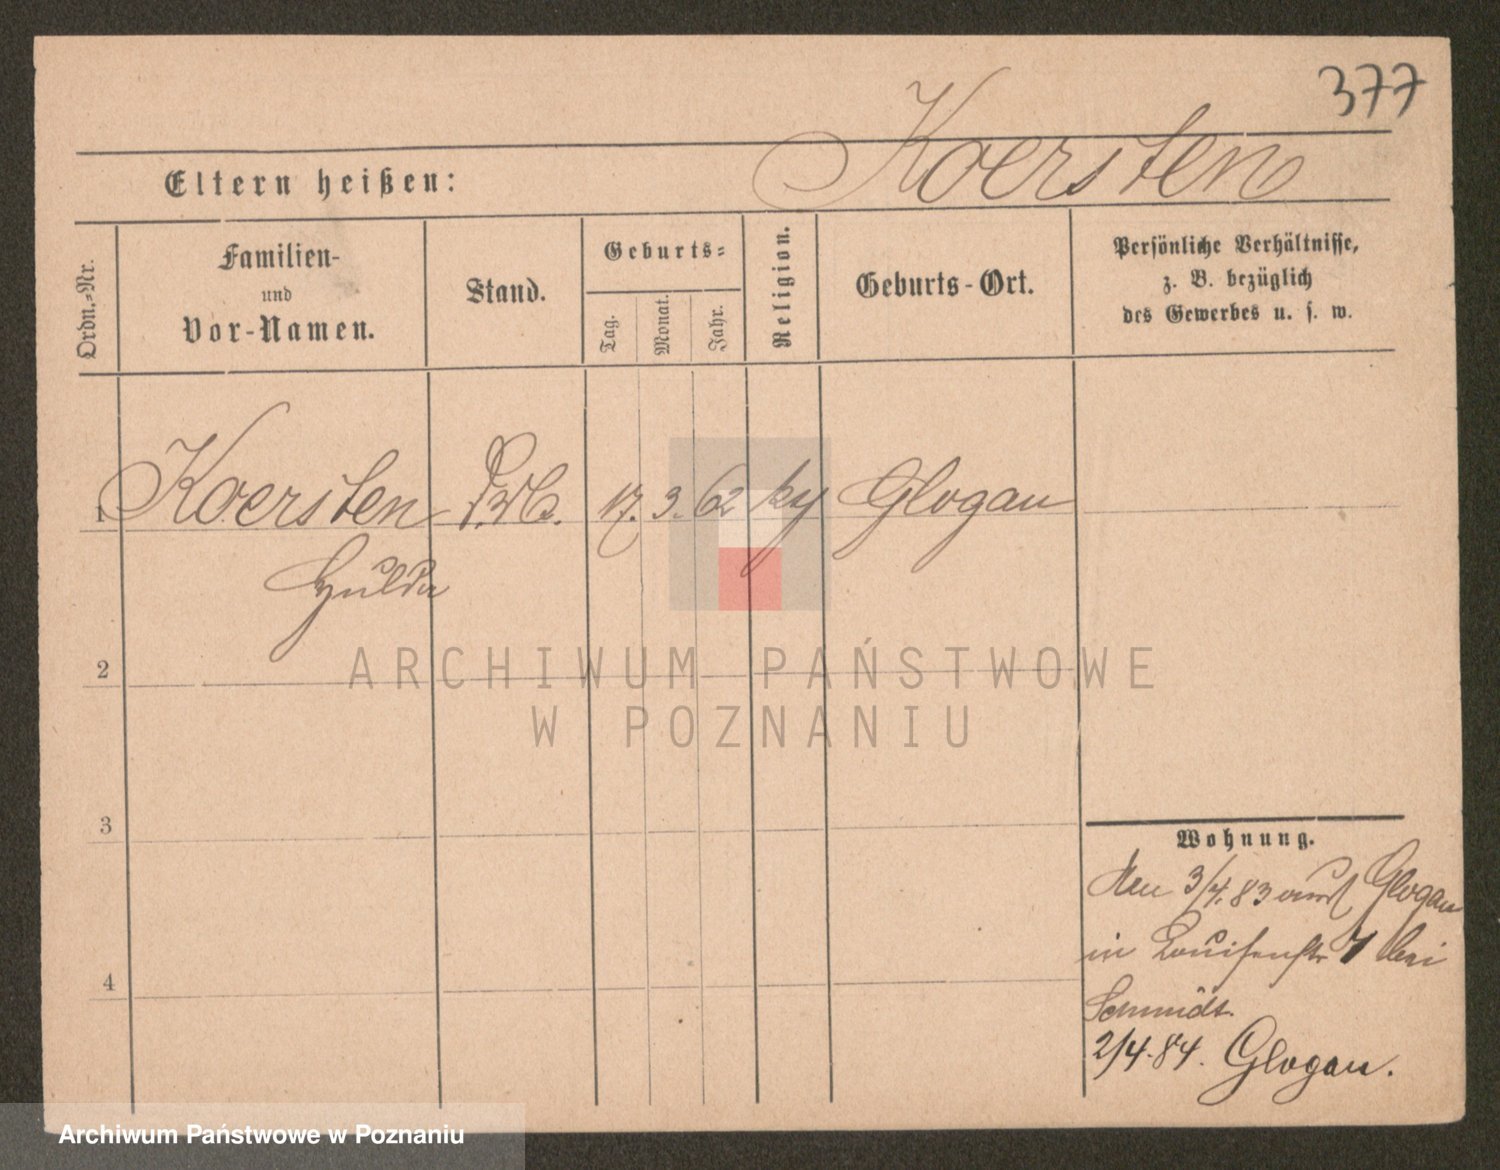 377
Koersten
Eltern heißen:
Ordn.-Nr.
Familien-
und
Vor-Namen.
Stand.
Geburts-
Tag.
Monat.
Jahr.
Religion.
Geburts-Ort.
Persönliche Verhältnisse,
z. B. bezüglich
des Gewerbes u. s. w.
1 Koersten 17. 3. 62 Glogau
Hulda
2
3
4
Wohnung.
3/4.83 Glogau
in Louisenstr 7 bei
Schmidt.
2/4.84. Glogau.
ARCHIWUM PAŃSTWOWE
W POZNANIU
Archiwum Państwowe w Poznaniu